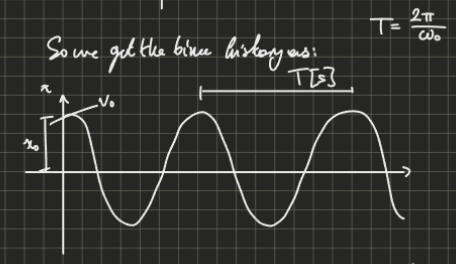 T = 2π / ω₀
So we get the time history as:
T[s]
x
v₀
x₀